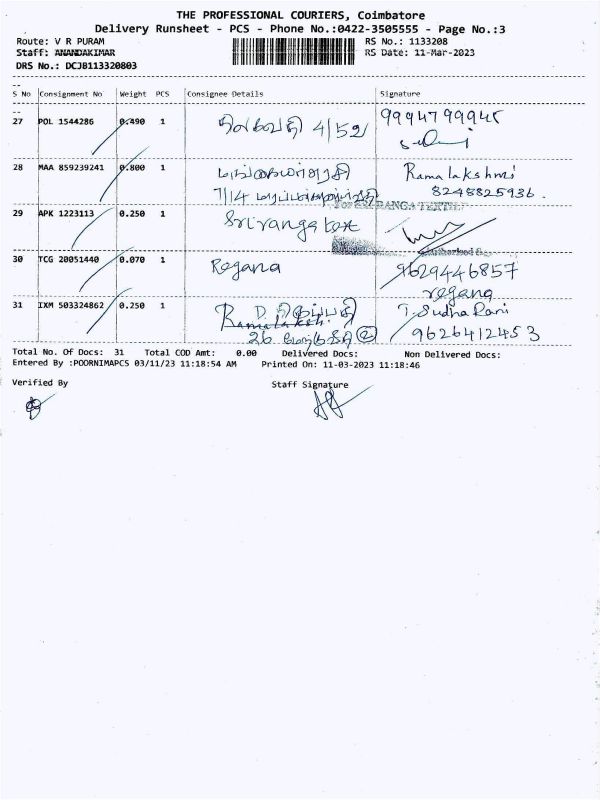 THE PROFESSIONAL COURIERS, Coimbatore
Delivery Runsheet - PCS - Phone No.:0422-3505555 - Page No.:3
Route: V R PURAM
RS No.: 1133208
Staff: ANANDAKIMAR
RS Date: 11-Mar-2023
DRS No.: DCJB113320803
S No Consignment No Weight PCS Consignee Details Signature
27 POL 1544286 0.490 1 4/52 9994799945
28 MAA 859239241 0.800 1 Ramalakshmi
7/14 8248825936.
For SRI RANGA TEXTILE
29 APK 1223113 0.250 1 Sriranga tex
30 TCG 20051440 0.070 1 Regana 9629446857
regana
31 IXM 503324862 0.250 1 D. T. Sudha Rani
26 9626412453
Total No. Of Docs: 31 Total COD Amt: 0.00 Delivered Docs: Non Delivered Docs:
Entered By :POORNIMAPCS 03/11/23 11:18:54 AM Printed On: 11-03-2023 11:18:46
Verified By Staff Signature